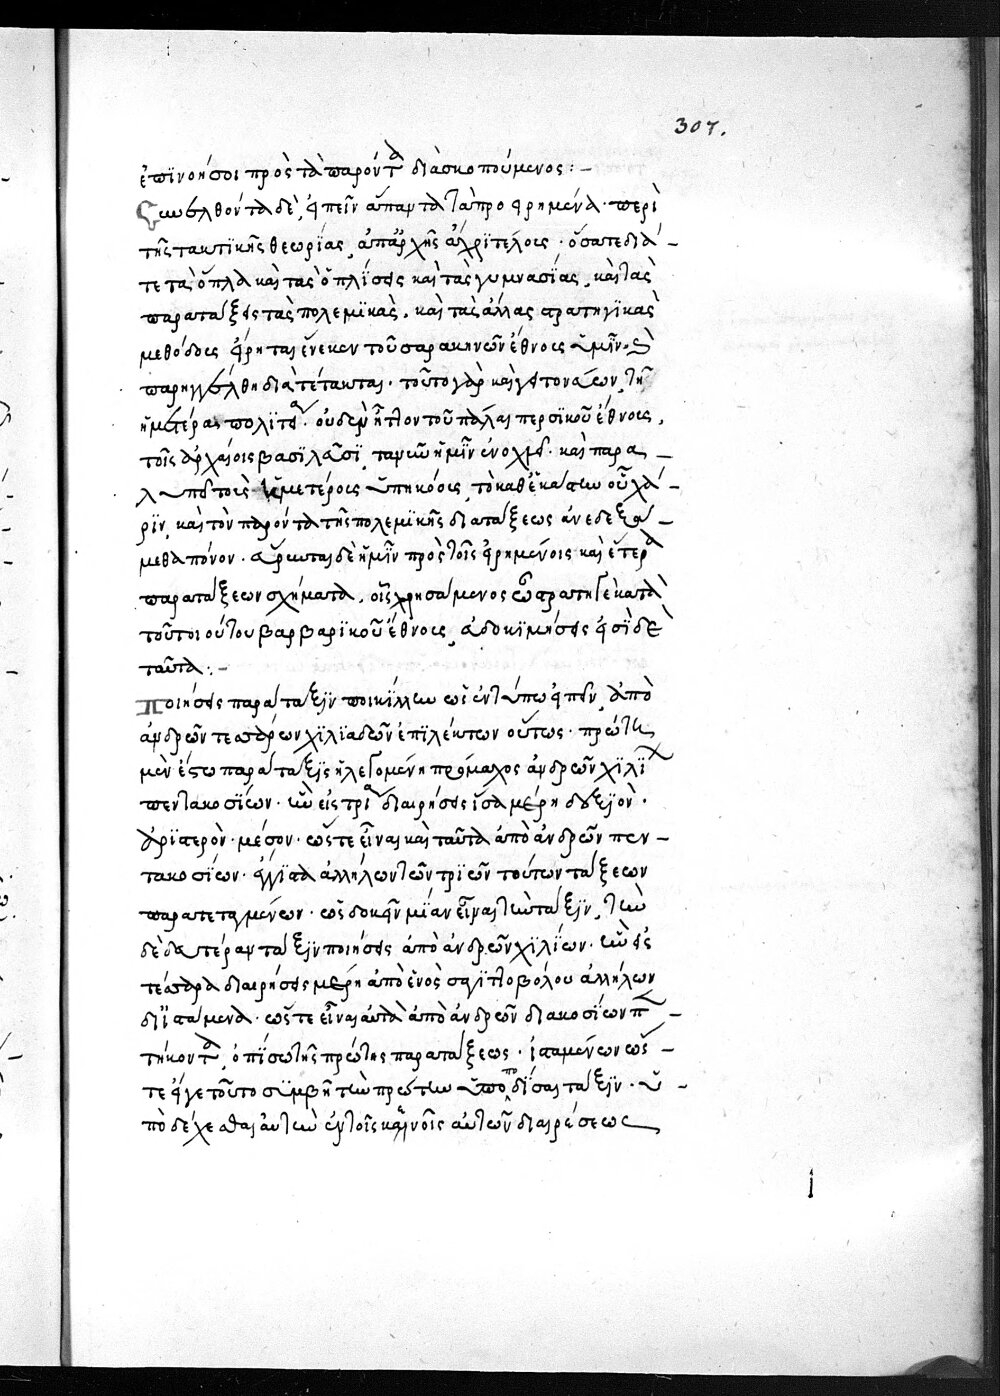 307.
ἐπινοήσοι πρὸς τὰ παρόντα διασκοπούμενος :-
Συνελθόντα δὲ, εἰπεῖν ἅπαντα τὰ προειρημένα· περὶ
τῆς τακτικῆς θεωρίας, ἀπαρχῆς ἄχρι τέλους· ὅσα τε διά-
τε τὰ ὅπλα καὶ τὰς ὁπλίσεις καὶ τὰς γυμνασίας, καὶ τὰς
παρατάξεις τὰς πολεμικὰς, καὶ τὰς ἄλλας στρατηγικὰς
μεθόδους εἴρηται ἕνεκεν τοῦ σαρακηνῶν ἔθνους ὑμῖν·
παρηγγέλθη διατέτακται· τοῦτο γὰρ καὶ γειτονεύων, τῇ
ἡμετέρα πολιτεία· οὐδὲν ἧττον τοῦ πάλαι περσικοῦ ἔθνους,
τοῖς ἀρχαίοις βασιλεῦσι, τανῦν ἡμῖν ἐνοχλεῖ· καὶ παρα-
λυπεῖ τοὺς ἡμετέρους ὑπηκόους, τὸ καθεκάστην οὗ χά-
ριν, καὶ τὸν παρόντα τῆς πολεμικῆς διατάξεως ἀνεδεξά-
μεθα πόνον. εὕρωνται δὲ ἡμῖν πρὸς τοῖς εἰρημένοις καὶ ἕτερα
παρατάξεων σχήματα, οἷς χρησάμενος ὦ στρατηγὲ κατὰ
τοῦ τοιούτου βαρβαρικοῦ ἔθνους, εὐδοκιμήσεις εἰσὶ δὲ
ταῦτα :-
Ποιήσεις παράταξιν ποικίλλην ὡς ἐν τύπω εἰπεῖν, ἀπὸ
ἀνδρῶν τεσσάρων χιλιάδων ἐπιλέκτων οὕτως· πρώτη
μὲν ἔστω παράταξις ἡ λεγομένη πρόμαχος ἀνδρῶν χιλίων
πεντακοσίων· ἣν εἰς τρία διαιρήσεις ἴσα μέρη δεξιὸν·
ἀριστερὸν· μέσον· ὥστε εἶναι καὶ ταῦτα ἀπὸ ἀνδρῶν πεν-
τακοσίων· ἔγγιστα ἀλλήλων τῶν τριῶν τούτων τάξεων
παρατεταγμένων· ὡς δοκεῖν μίαν εἶναι τὴν τάξιν, τὴν
δὲ δευτέραν τάξιν ποιήσεις ἀπὸ ἀνδρῶν χιλίων· ἣν εἰς
τέσσαρα διαιρήσεις μέρη ἀπὸ ἑνὸς σαγιττοβόλου ἀλλήλων
διϊστάμενα· ὥστε εἶναι αὐτὰ ἀπὸ ἀνδρῶν διακοσίων πεν-
τήκοντα, ὀπίσω τῆς πρώτης παρατάξεως· ἱσταμένων ὥσ-
τε εἴγε τοῦτο συμβῆ τὴν πρώτην ὑποποδίσαι τάξιν· ὑ-
ποδέχεσθαι αὐτὴν ἐν τοῖς κενοῖς αὐτῶν διαιρέσεως